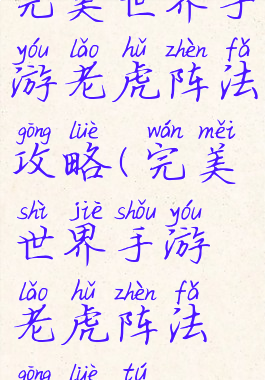 完美世界手
yóu lǎo hǔ zhèn fǎ
游老虎阵法
gōng lüè wán měi
攻略(完美
shì jiè shǒu yóu
世界手游
lǎo hǔ zhèn fǎ
老虎阵法
gōng lüè tú